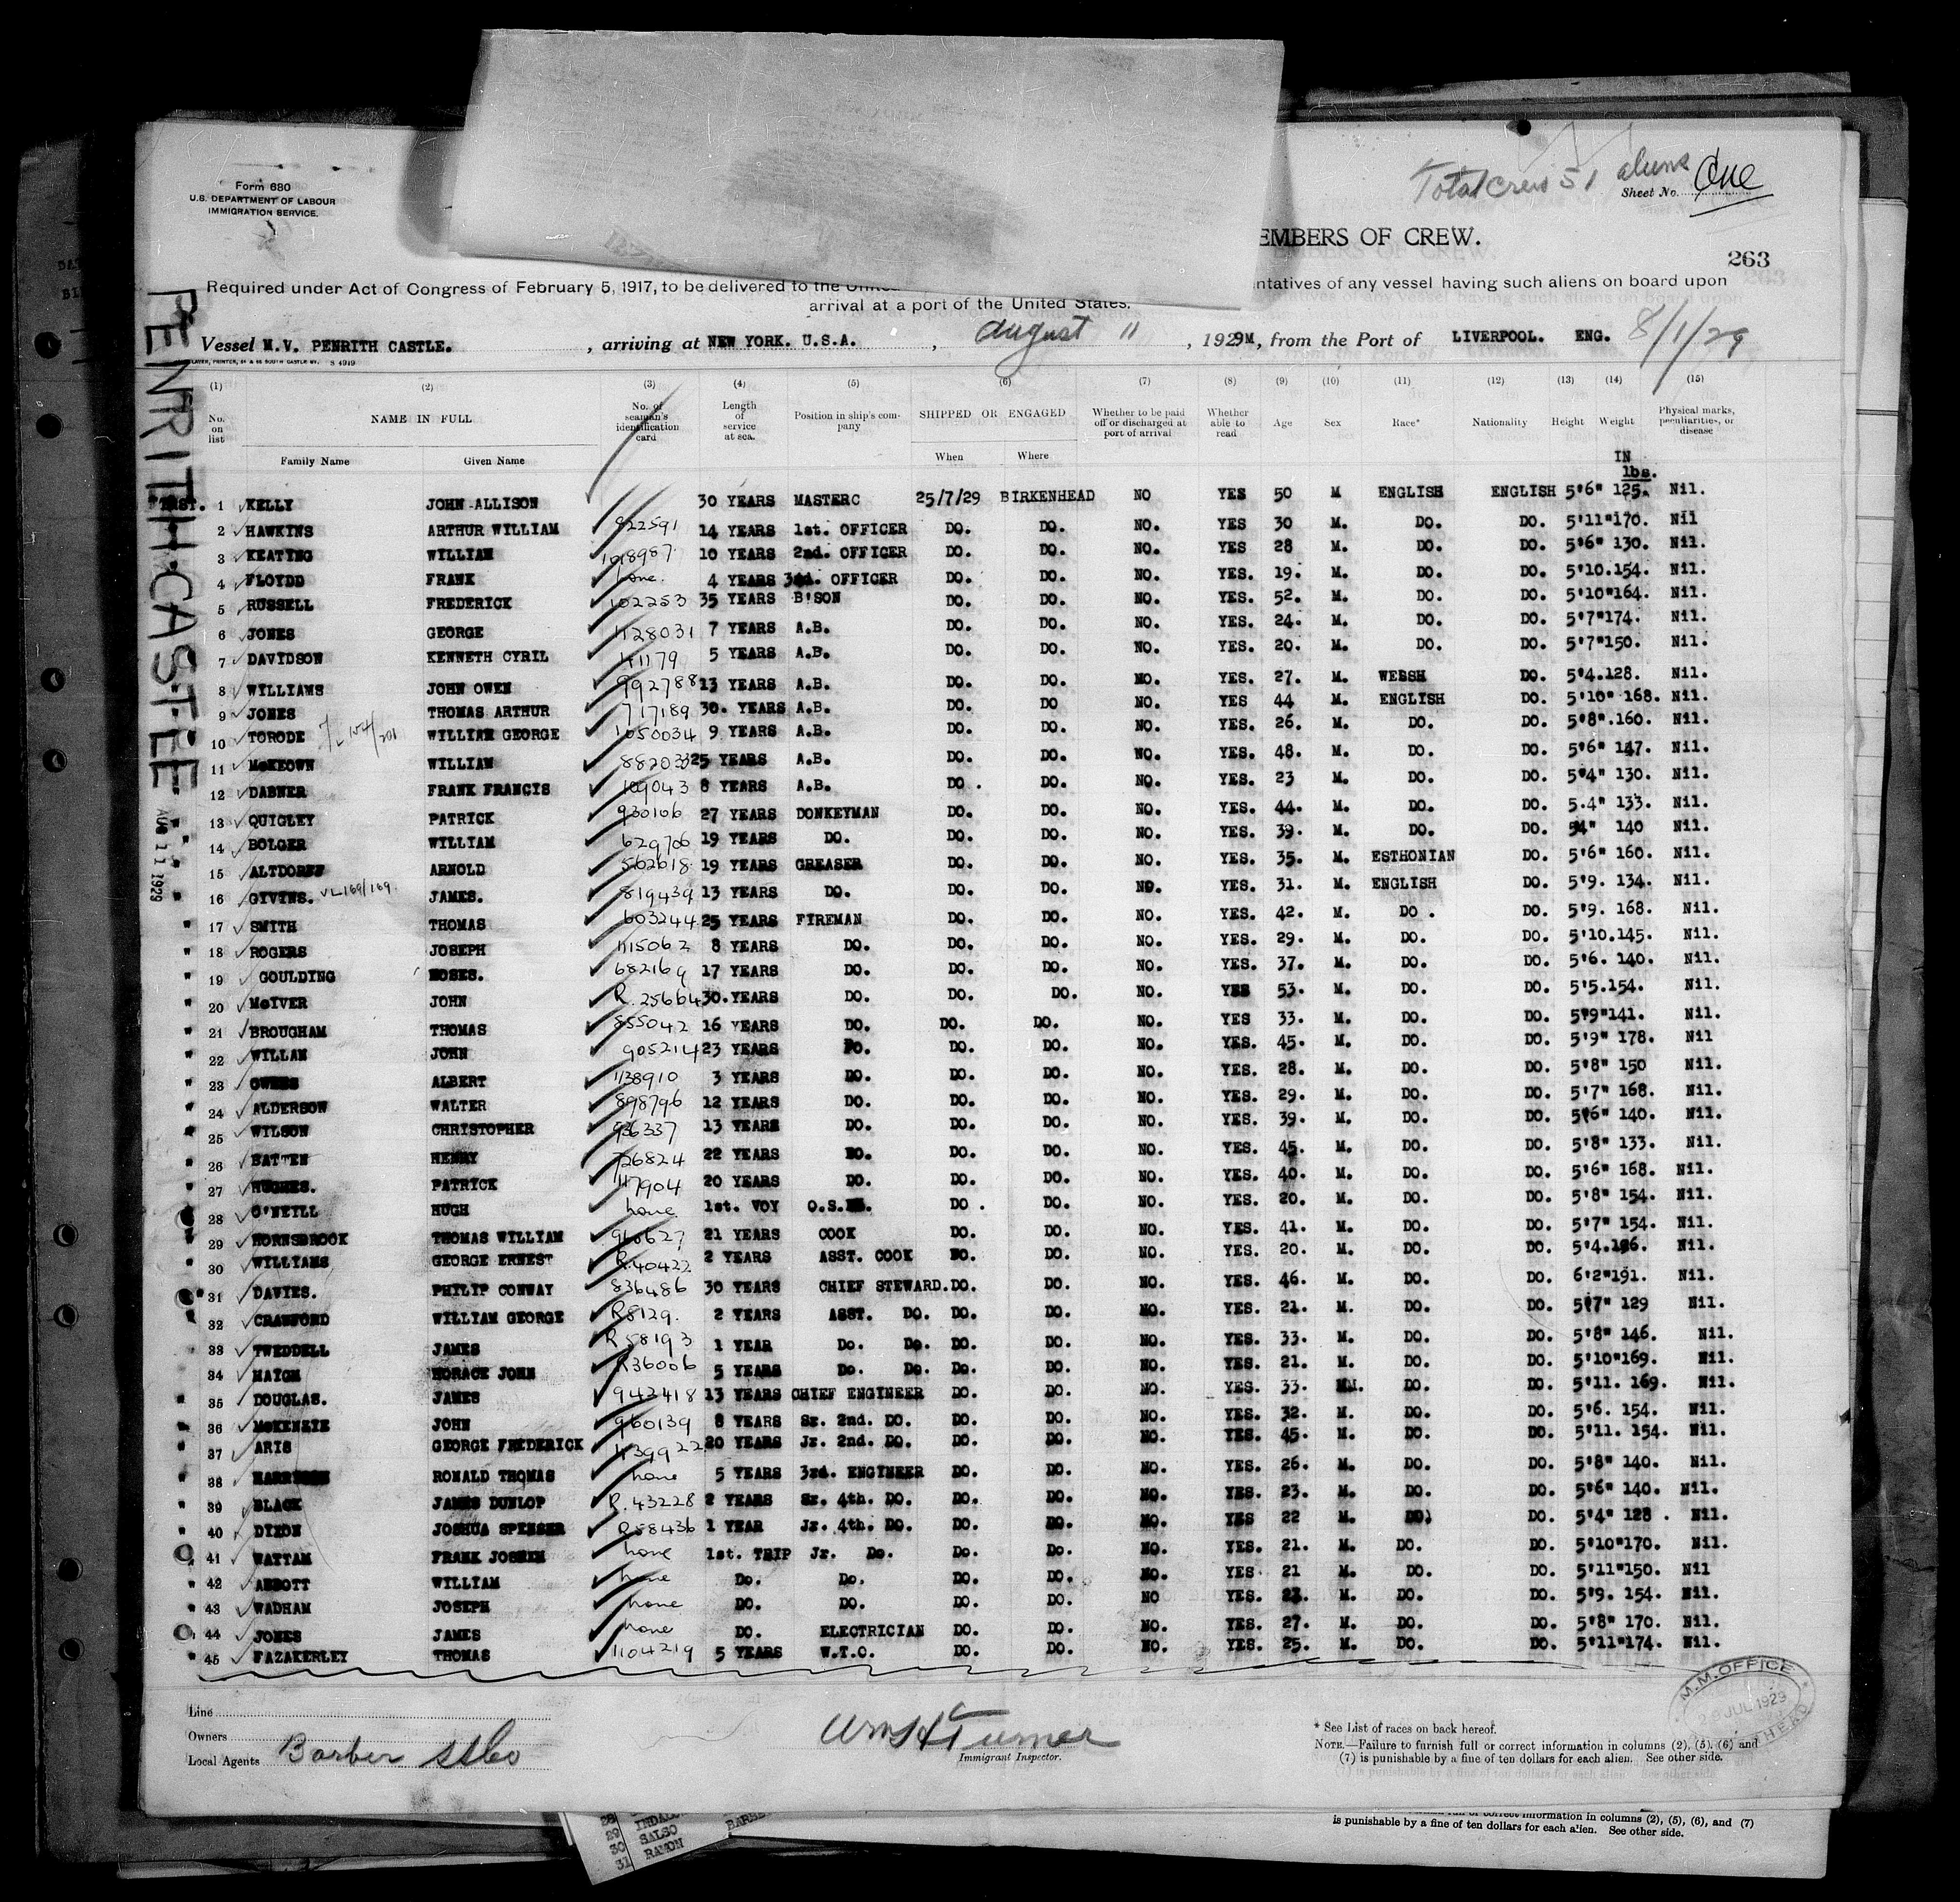 Form 680
U.S. DEPARTMENT OF LABOUR
IMMIGRATION SERVICE.
Total crew 51 aliens
Sheet No. One
EMBERS OF CREW.
263
Required under Act of Congress of February 5, 1917, to be delivered to the ntatives of any vessel having such aliens on board upon
arrival at a port of the United States.
Vessel M.V. PENRITH CASTLE. , arriving at NEW YORK. U.S.A. , August 11 , 1929 , from the Port of LIVERPOOL. ENG. 8/1/29
PENRITH CASTLE
AUG 11 1929
(1) (2) (3) (4) (5) (6) (7) (8) (9) (10) (11) (12) (13) (14) (15)
No. on list NAME IN FULL No. of seaman's identification card Length of service at sea. Position in ship's company SHIPPED OR ENGAGED Whether to be paid off or discharged at port of arrival Whether able to read Age Sex Race* Nationality Height Weight Physical marks, peculiarities, or disease
Family Name Given Name When Where IN lbs.
1 KELLY JOHN ALLISON 30 YEARS MASTER 25/7/29 BIRKENHEAD NO YES 50 M ENGLISH ENGLISH 5'6" 125. Nil.
2 HAWKINS ARTHUR WILLIAM 822591 14 YEARS 1st. OFFICER DO. DO. NO. YES 30 M. DO. DO. 5'11" 170. Nil
3 KEATING WILLIAM 1018987 10 YEARS 2nd. OFFICER DO. DO. NO. YES 28 M. DO. DO. 5'6" 130. Nil.
4 FLOYDD FRANK none. 4 YEARS 3rd. OFFICER DO. DO. NO. YES. 19. M. DO. DO. 5'10. 154. Nil.
5 RUSSELL FREDERICK 102253 35 YEARS B'SON DO. DO. NO. YES. 52. M. DO. DO. 5'10" 164. Nil.
6 JONES GEORGE 1128031 7 YEARS A.B. DO. DO. NO. YES. 24. M. DO. DO. 5'7" 174. Nil.
7 DAVIDSON KENNETH CYRIL 5 YEARS A.B. DO. DO. NO. YES. 20. M. DO. DO. 5'7" 150. Nil.
8 WILLIAMS JOHN OWEN 992788 13 YEARS A.B. DO. DO. NO. YES. 27. M. WEBSH DO. 5'4. 128. Nil.
9 JONES THOMAS ARTHUR 717189 30. YEARS A.B. DO. DO NO YES 44 M. ENGLISH DO. 5'10" 168. Nil.
10 TORODE WILLIAM GEORGE 1050034 9 YEARS A.B. DO. DO. NO. YES. 26. M. DO. DO. 5'8". 160. Nil.
11 McKEOWN WILLIAM 25 YEARS A.B. DO. DO. NO. YES. 48. M. DO. DO. 5'6" 147. Nil.
12 DABNER FRANK FRANCIS 109043 8 YEARS A.B. DO . DO. NO. YES. 23 M. DO. DO. 5'4" 130. Nil.
13 QUIGLEY PATRICK 930106 27 YEARS DONKEYMAN DO. DO. NO. YES. 44. M. DO. DO. 5.4" 133. Nil.
14 BOLGER WILLIAM 629706 19 YEARS DO. DO. DO. NO. YES. 39. M. DO. DO. 140 Nil.
15 ALTDORFF ARNOLD 562618 19 YEARS GREASER DO. DO. NO. YES. 35. M. ESTHONIAN DO. 5'6" 160. Nil.
16 GIVINS. VL 169/169. JAMES. 819439 13 YEARS DO. DO. DO. NO. YES. 31. M. ENGLISH DO. 5'9. 134. Nil.
17 SMITH THOMAS 603244 25 YEARS FIREMAN DO. DO. NO. YES. 42. M. DO . DO. 5'9. 168. Nil.
18 ROGERS JOSEPH 1115062 8 YEARS DO. DO. DO. NO. YES. 29. M. DO. DO. 5'10. 145. Nil.
19 GOULDING MOSES. 682169 17 YEARS DO. DO. DO. NO. YES. 37. M. DO. DO. 5'6. 140. Nil.
20 McIVER JOHN R. 25664 30. YEARS DO. DO. DO. NO. YES 53. M. DO. DO. 5'5. 154. Nil.
21 BROUGHAM THOMAS 855042 16 YEARS DO. DO. DO. NO. YES 33. M. DO. DO. 5'9" 141. Nil.
22 WILLAN JOHN 905214 23 YEARS DO. DO. DO. NO. YES. 45. M. DO. DO. 5'9" 178. Nil
23 OWENS ALBERT 1138910 3 YEARS DO. DO. DO. NO. YES. 28. M. DO. DO. 5'8" 150 Nil.
24 ALDERSON WALTER 898796 12 YEARS DO. DO. DO. NO. YES. 29. M. DO. DO. 5'7" 168. Nil.
25 WILSON CHRISTOPHER 936337 13 YEARS DO. DO. DO. NO. YES. 39. M. DO. DO. 5'6" 140. Nil.
26 BATTEN HENRY 726824 22 YEARS DO. DO. DO. NO. YES. 45. M. DO. DO. 5'8" 133. Nil.
27 HUGHES. PATRICK 1117904 20 YEARS DO. DO. DO. NO. YES. 40. M. DO. DO. 5'6" 168. Nil.
28 O'NEILL HUGH none 1st. VOY O.S. DO . DO. NO. YES. 20. M. DO. DO. 5'8" 154. Nil.
29 HORNSBROOK THOMAS WILLIAM 21 YEARS COOK DO. DO. NO. YES. 41. M. DO. DO. 5'7" 154. Nil.
30 WILLIAMS GEORGE ERNEST R.40422 2 YEARS ASST. COOK DO. DO. NO. YES. 20. M. DO. DO. 5'4. Nil.
31 DAVIES. PHILIP CONWAY 836486 30 YEARS CHIEF STEWARD. DO. DO. NO. YES. 46. M. DO. DO. 6'2" 191. Nil.
32 CRAWFORD WILLIAM GEORGE R8129. 2 YEARS ASST. DO. DO. DO. NO. YES. 21. M. DO. DO. 5'7" 129 Nil.
33 TWEDDELL JAMES R58193 1 YEAR Do. Do. DO. DO. NO. YES. 33. M. DO. DO. 5'8" 146. Nil.
34 HORACE JOHN R36006 5 YEARS Do. Do. Do. DO. NO. YES. 21. M. DO. DO. 5'10" 169. Nil.
35 DOUGLAS. JAMES 943418 13 YEARS CHIEF ENGINEER DO. DO. NO. YES. 33. M. DO. DO. 5'11. 169. Nil.
36 McKENZIE JOHN 960139 8 YEARS Sr. 2nd. DO. DO. DO. NO. YES. 32. M. DO. DO. 5'6. 154. Nil.
37 ARIS GEORGE FREDERICK 20 YEARS Jr. 2nd. DO. DO. DO. NO. YES. 45. M. DO. DO. 5'11. 154. Nil.
38 HARRISON RONALD THOMAS none 5 YEARS 3rd. ENGINEER DO. DO. NO. YES. 26. M. DO. DO. 5'8" 140. Nil.
39 BLACK JAMES DUNLOP R. 43228 2 YEARS Sr. 4th. DO. DO. DO. NO. YES. 23. M. DO. DO. 5'6" 140. Nil.
40 DIXON JOSHUA SPENSER R58436 1 YEAR Jr. 4th. DO. DO. DO. NO. YES 22 M. DO. DO. 5'4" 128 . Nil.
41 WATTAM FRANK none 1st. TRIP Jr. Do. Do. Do. NO. YES. 21. M. DO. DO. 5'10" 170. Nil.
42 ABBOTT WILLIAM none Do. Do. DO. DO. NO. YES 21 M. DO. DO. 5'11" 150. Nil
43 WADHAM JOSEPH none DO. DO. DO. DO. NO YES. M. DO. DO. 5'9. 154. Nil.
44 JONES JAMES none DO. ELECTRICIAN DO. DO. NO. YES. 27. M. DO. DO. 5'8" 170. Nil.
45 FAZAKERLEY THOMAS 1104219 5 YEARS W.T.O. DO. DO. NO. YES. 25. M. DO. DO. 5'11" 174. Nil.
M.M. OFFICE
JUL 1929
Line
Owners
Local Agents Barber SSCo
Wm H Turner
Immigrant Inspector.
* See List of races on back hereof.
NOTE.—Failure to furnish full or correct information in columns (2), (5), (6) and
(7) is punishable by a fine of ten dollars for each alien. See other side.
28
29 INDAL
30 SALSO
31 RAMON
BARBE
information in columns (2), (5), (6), and (7)
is punishable by a fine of ten dollars for each alien. See other side.